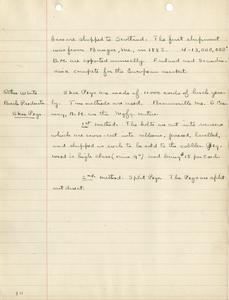 are shipped to Scotland. The first shipment
was from Bangor, Me., in 1883. 4-13,000,000'
B.M. are exported annually. Finland and Scandin-
avia compete for the European market.
Other White
Birch Products
Shoe Pegs
Shoe Pegs are made of 11000 cords of birch year-
ly. Two methods are used.
N.H. are the mfg. centers.
1st method. The bolts are cut into
which are cross-cut into ribbons, pressed, bevelled,
and shipped in such to be sold to the cobbler. Peg
wood is high class (min. 9") and brings $15 per cord.
2nd. method. Split Pegs. The Pegs are split
out direct.